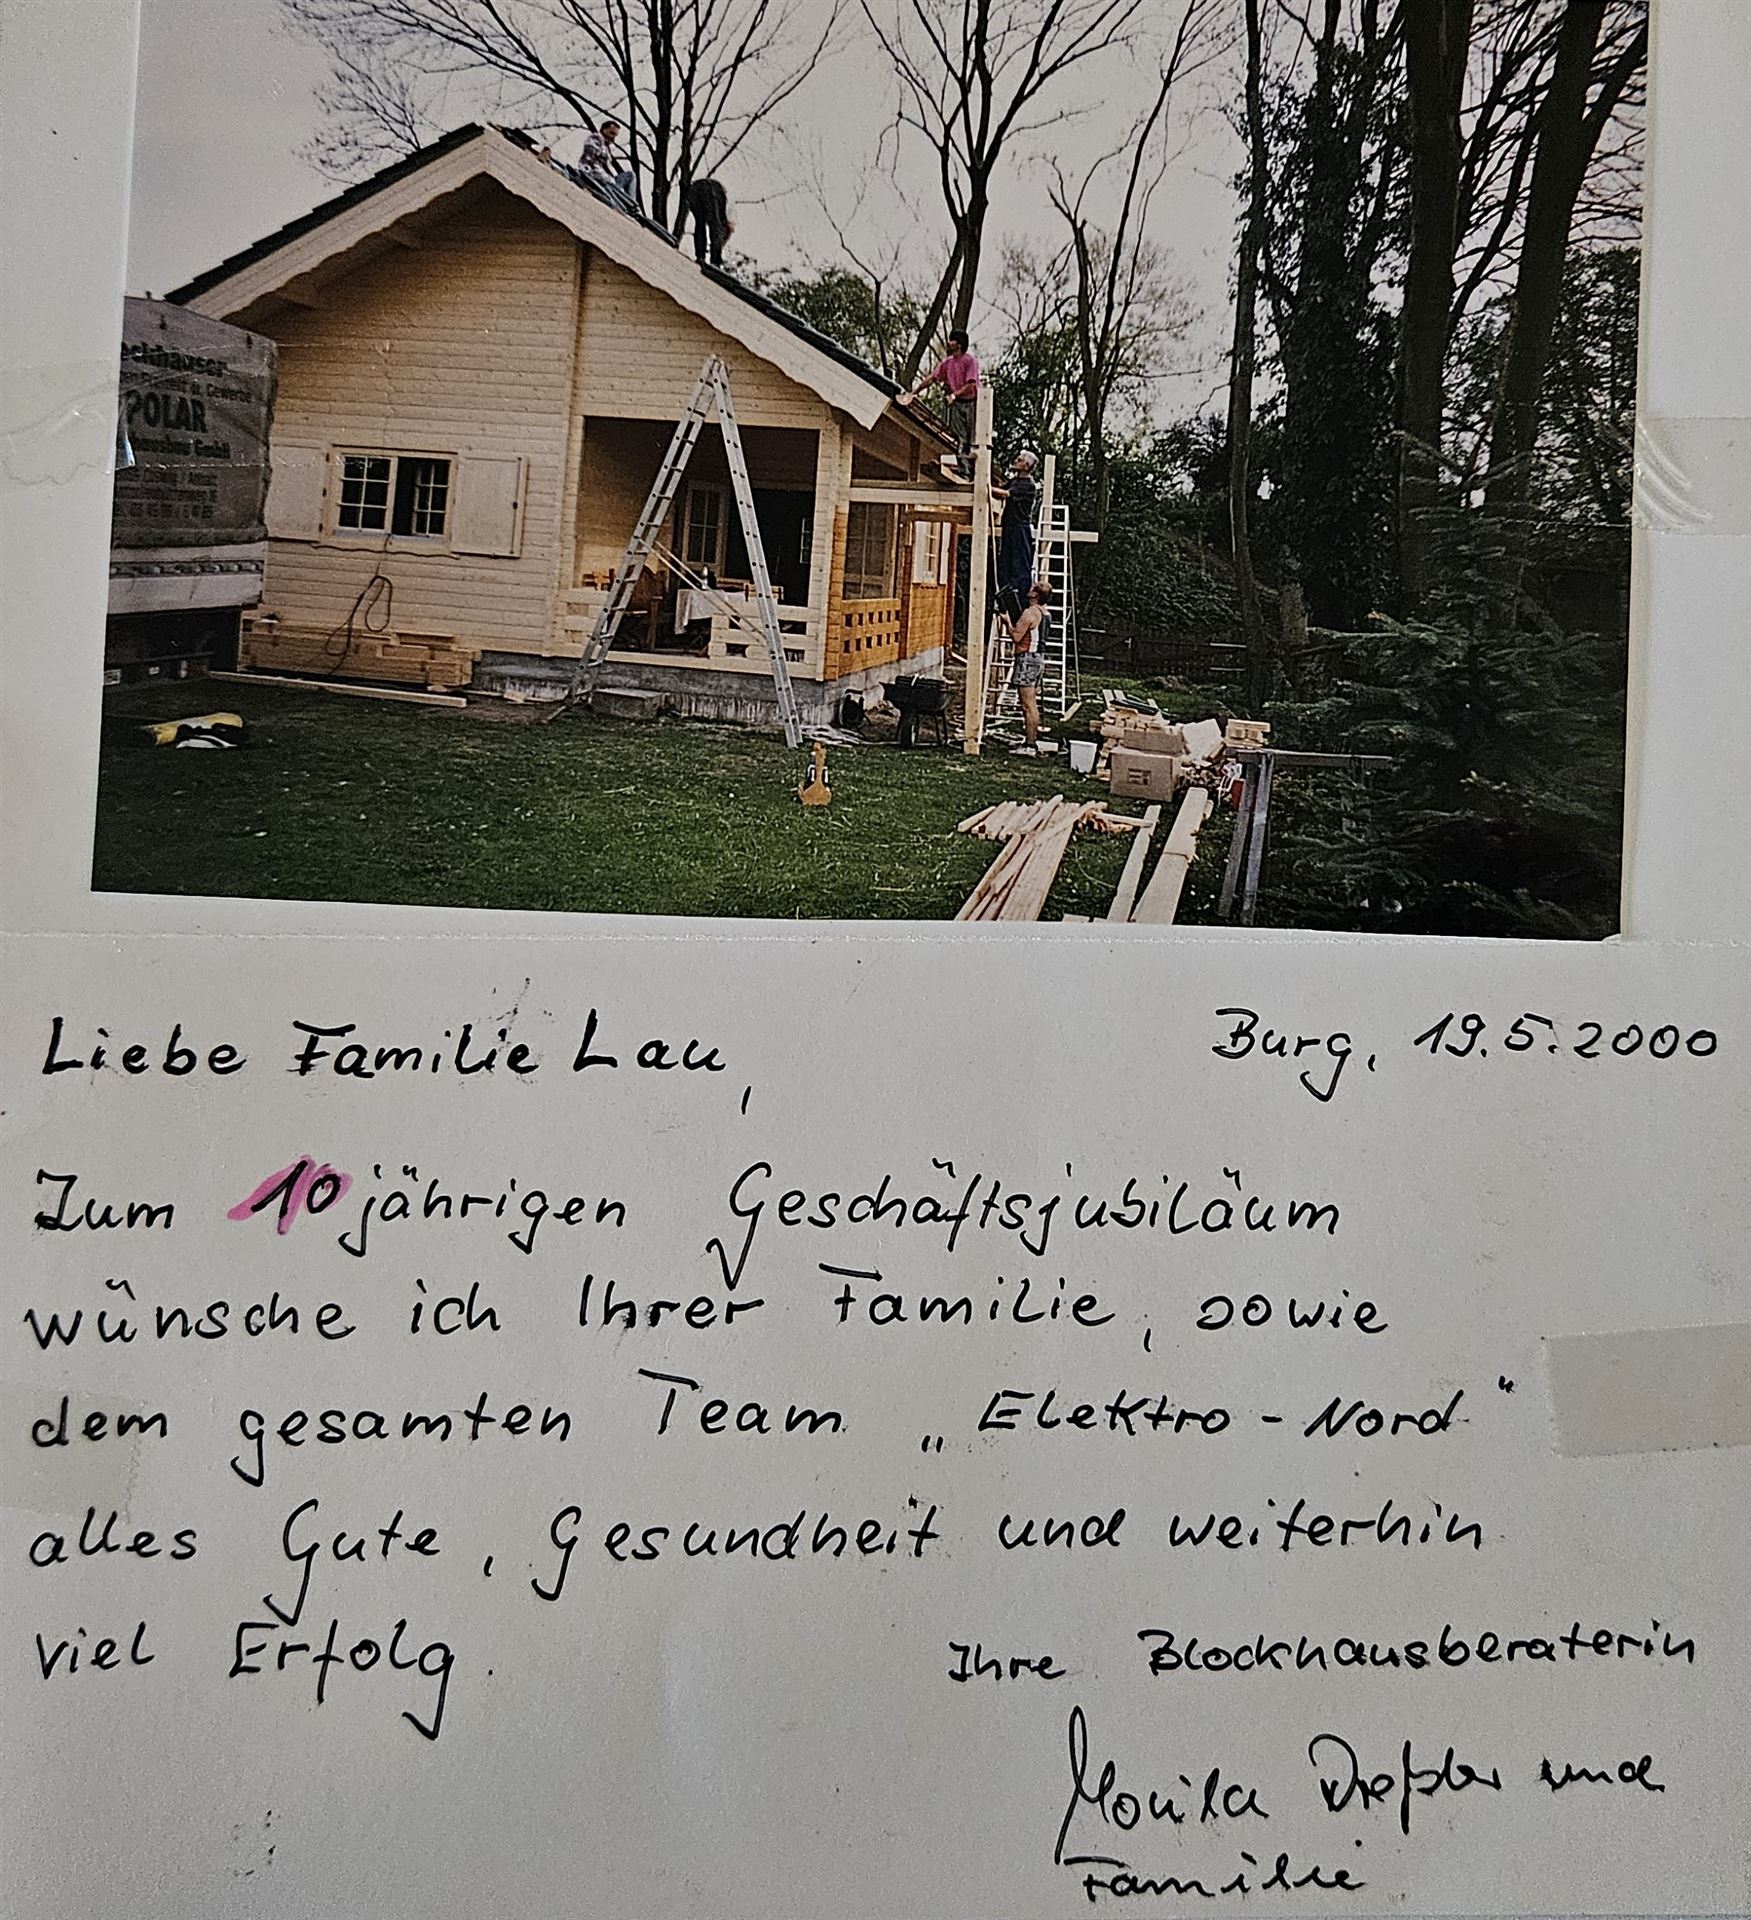 POLAR
Liebe Familie Lau,
Burg, 19.5.2000
Zum 10jährigen Geschäftsjubiläum
wünsche ich Ihrer Familie, sowie
dem gesamten Team „Elektro-Nord"
alles Gute, Gesundheit und weiterhin
viel Erfolg.
Ihre Blockhausberaterin
Monika Dreßler und
Familie